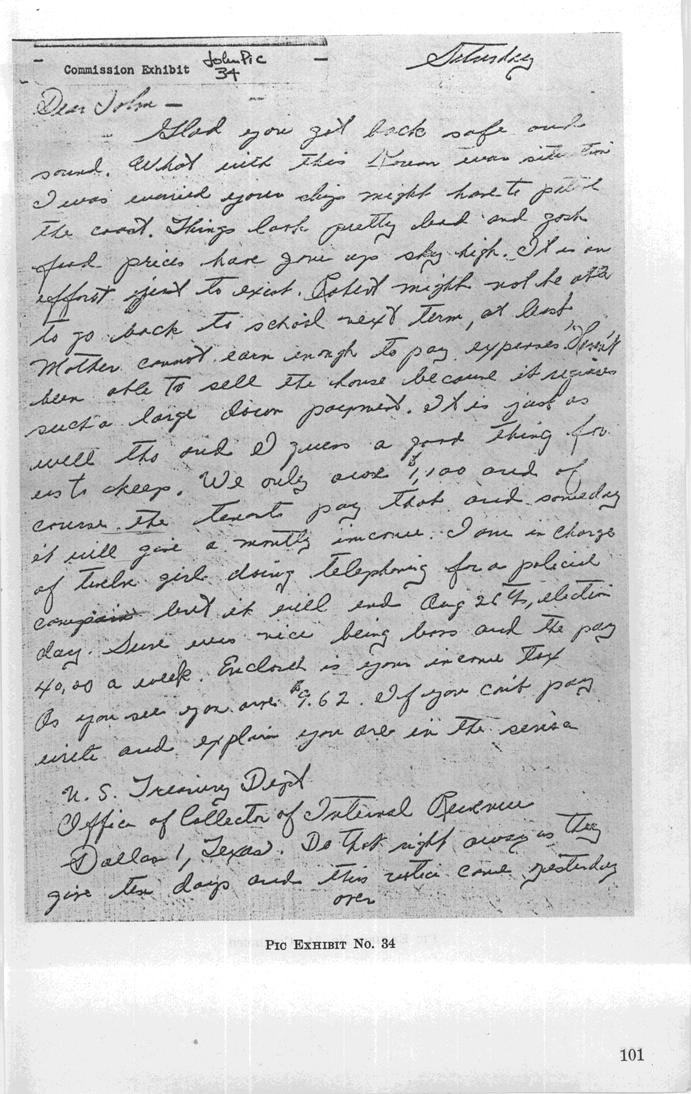 Commission Exhibit John Pic
34
Saturday
Dear John —
Glad you got back safe and
sound. What with this Korean war situation
I was worried your ship might have to patrol
the coast. Things look pretty bad and gosh
food prices have gone up sky high. It is an
effort just to exist. Robert might not be able
to go back to school next term, at least
Mother cannot earn enough to pay expenses. Haven't
been able to sell the house because it requires
such a large down payment. It is just as
well tho and I guess a good thing for
us to keep. We only owe $1,100 and of
course the tenants pay that and someday
it will give a montly income. I am in charge
of twelve girls doing telephoning for a political
but it will end Aug 26th, election
day. Sure was nice being boss and the pay
40,00 a week. Enclosed is your income tax
As you see you owe $9.62. If you can't pay
write and explain you are in the service
U. S. Treasury Dept
Office of Collector of Internal Revenue
Dallas 1, Texas. Do that right away as they
give ten days and this notice came yesterday
over
PIC EXHIBIT NO. 34
101